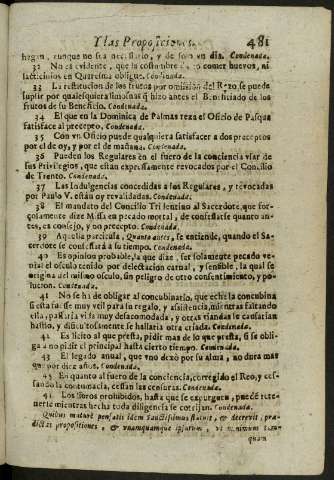 Y las Proposiciones. 481
hagan, aunque no sea necessario, y de solo vn dia. Condenada.
32 No es evidente, que la costumbre de no comer huevos, ni
lacticinios en Quaresma obligue. Condenada.
33 La restitucion de los frutos por omission del Rezo, se puede
suplir por qualesquiera limosnas q̃ hizo antes el Beneficiado de los
frutos de su Beneficio. Condenada.
34 El que en la Dominica de Palmas reza el Oficio de Pasqua
satisface al precepto. Condenada.
35 Con vn Oficio puede qualquiera satisfacer a dos preceptos
por el de oy, y por el de mañana. Condenada.
36 Pueden los Regulares en el fuero de la conciencia vsar de
sus Privilegios, que estàn expressamente revocados por el Concilio
de Trento. Condenada.
37 Las Indulgencias concedidas a los Regulares, y revocadas
por Paulo V. estàn oy revalidadas. Condenada.
38 El mandato del Concilio Tridentino al Sacerdote, que for-
çosamente dize Missa en pecado mortal, de confessarse quanto an-
tes, es consejo, y no precepto. Condenada.
39 Aquella particula, Quanto antes, se entiende, quando el Sa-
cerdote se confessarà a su tiempo. Condenada.
40 Es opinion probable, la que dize, ser solamente pecado ve-
nial el osculo tenido por delectacion carnal, y sensible, la qual se
origina del mismo osculo, sin peligro de otro consentimiento, y po-
lucion. Condenada.
41 No se ha de obligar al concubinario, que eche la concubina
si esta fuesse muy vtil para su regalo, y assistencia, mientras faltando
ella, passaria vida muy desacomodada, y otras viandas le causarian
hastio, y dificultosamente se hallaria otra criada. Condenada.
42 Es licito al que presta, pidir mas de lo que presta, si se obli-
ga a no pidir el principal hasta cierto tiempo. Condenada.
43 El legado anual, que vno dexò por su alma, no dura mas
que por diez años. Condenada.
44 En quanto al fuero de la conciencia, corregido el Reo, y ces-
sando la contumacia, cessan las censuras. Condenada.
45 Los libros prohibidos, hasta que se expurguen, puedẽ rete-
nerse mientras hecha toda diligencia se corrijan. Condenada.
Quibus maturè pensatis idem Sanctissimus statuit, & decrevit, præ-
dictas propositiones, & vnamquamque ipsarum, vt minimum tan-
quam